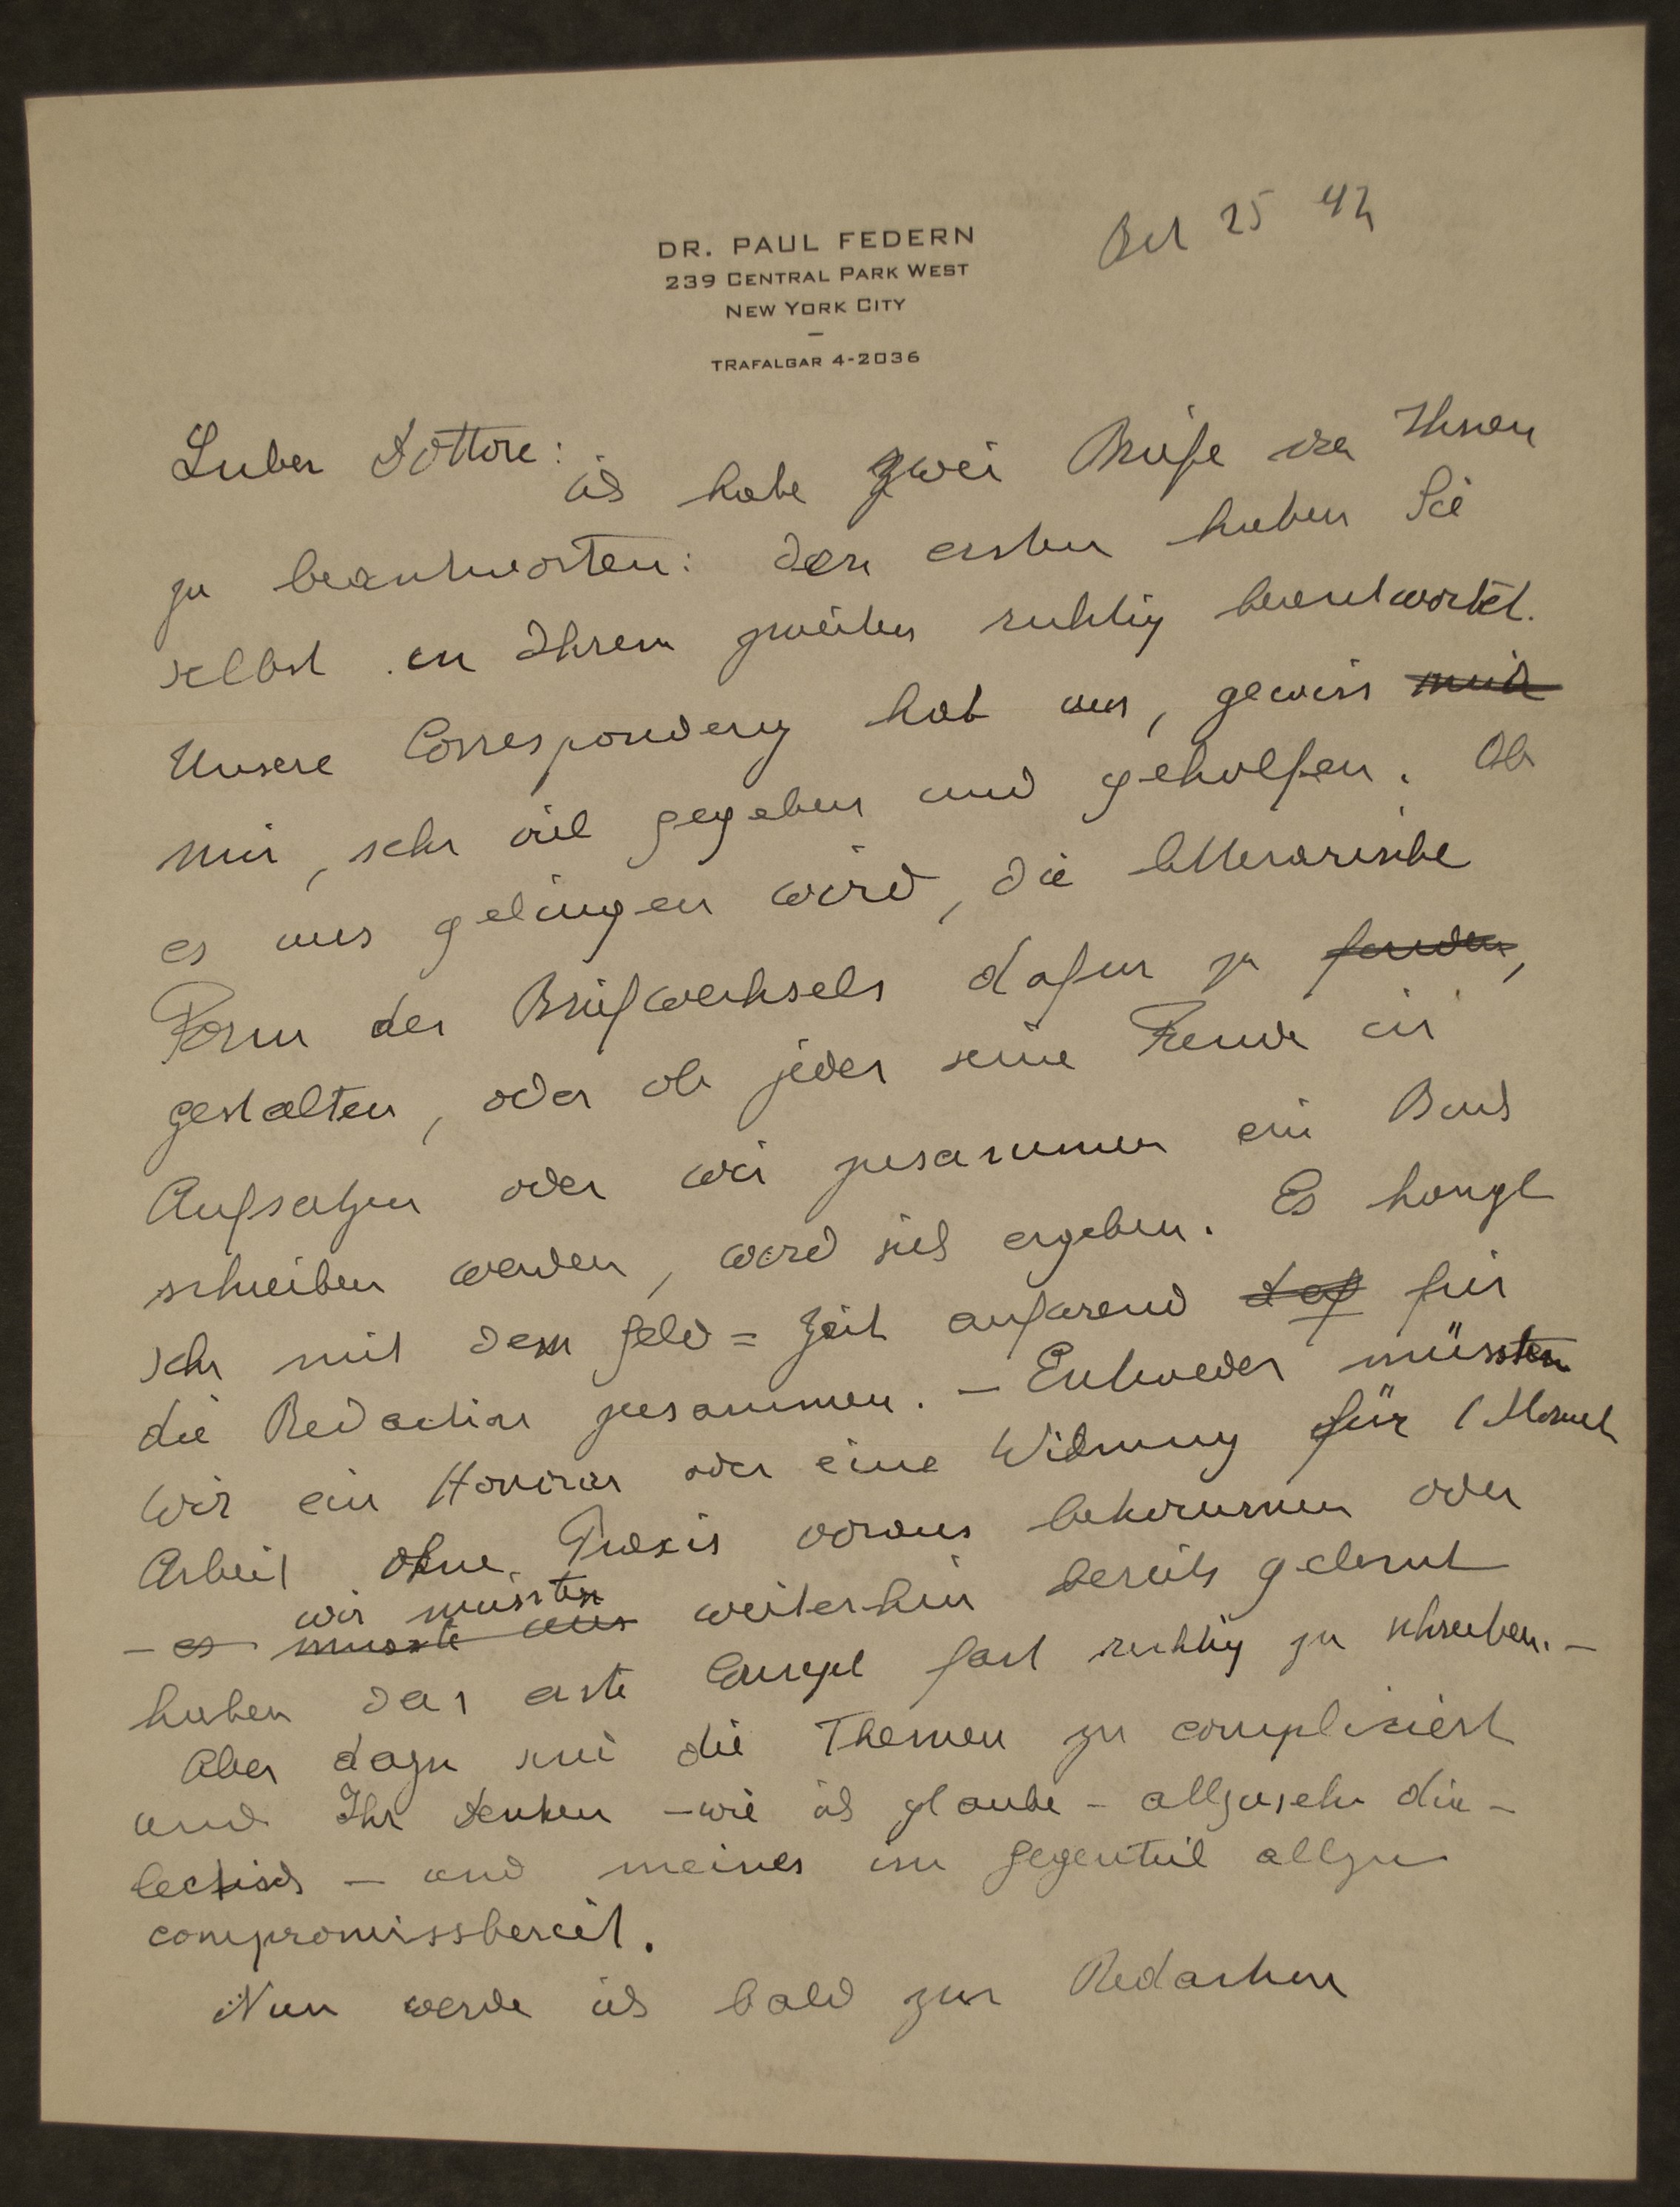 DR. PAUL FEDERN
239 CENTRAL PARK WEST
NEW YORK CITY
TRAFALGAR 4-2036
Oct 25 42
Lieber Dottore:
ich habe zwei Briefe von Ihnen
zu beantworten: den ersten haben Sie
selbst in Ihrem zweiten richtig beantwortet.
Unsere Correspondenz hat uns, gewiss mich
mir, sehr viel gegeben und geholfen. Ob
es uns gelingen wird, die litterarische
Form des Briefwechsels dafür zu finden,
gestalten, oder ob jeder seine Freude in
Aufsätzen oder wir zusammen ein Buch
schreiben werden, wird sich ergeben. Es hängt
sehr mit dem Geld = Zeit aufwand daf für
die Redaction zusammen. – Entweder müssten
wir ein Honorar oder eine Widmung für 1 Monat
Arbeit ohne Praxis voraus bekommen oder
wir müssten
– es müsste uns weiterhin bereits gelernt
haben das erste Concept fast richtig zu schreiben. –
Aber dazu sind die Themen zu compliciert
und Ihr Denken – wie ich glaube – allzusehr dia-
lectisch – und meines im Gegenteil allzu
compromissbereit.
Nun werde ich bald zur Redaction